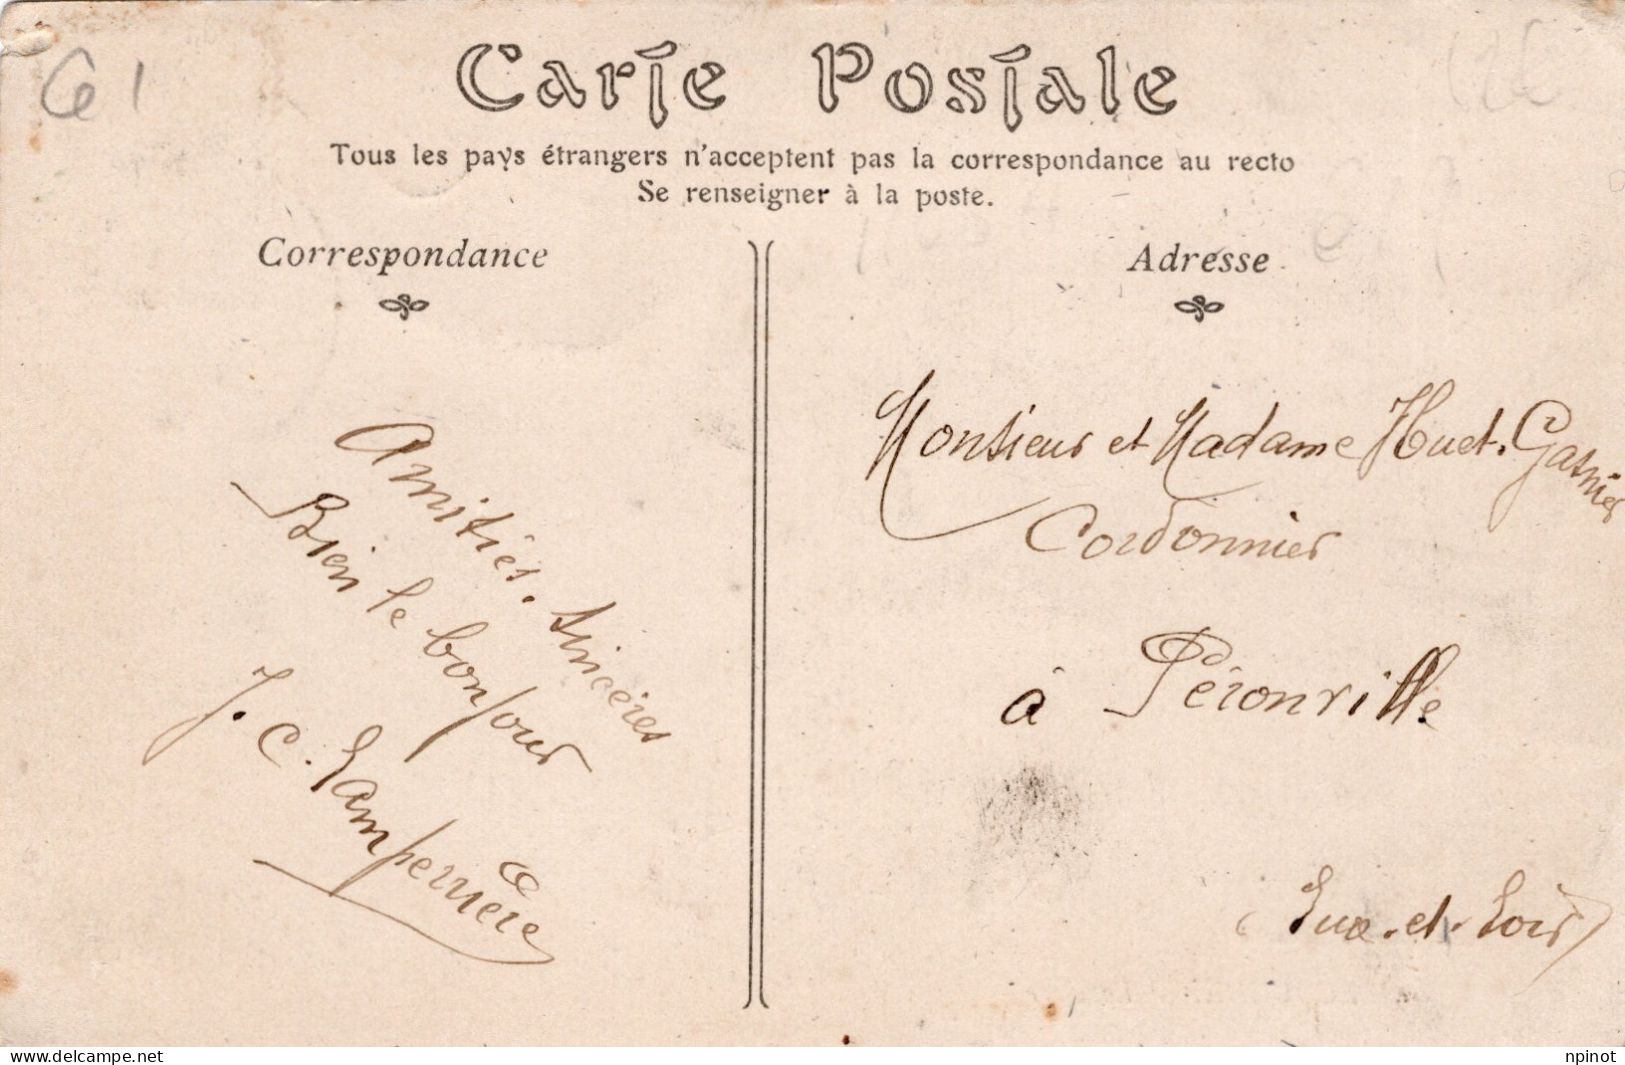 61
Carte Postale
Tous les pays étrangers n'acceptent pas la correspondance au recto
Se renseigner à la poste.
Correspondance
Amitiés. Sincères
Bien le bonjour
J. C. Lamperrière
Adresse
Monsieur et Madame Huet. Gasnier
Cordonnier
à Péronville
(Eure-et-Loir)
www.delcampe.net
npinot